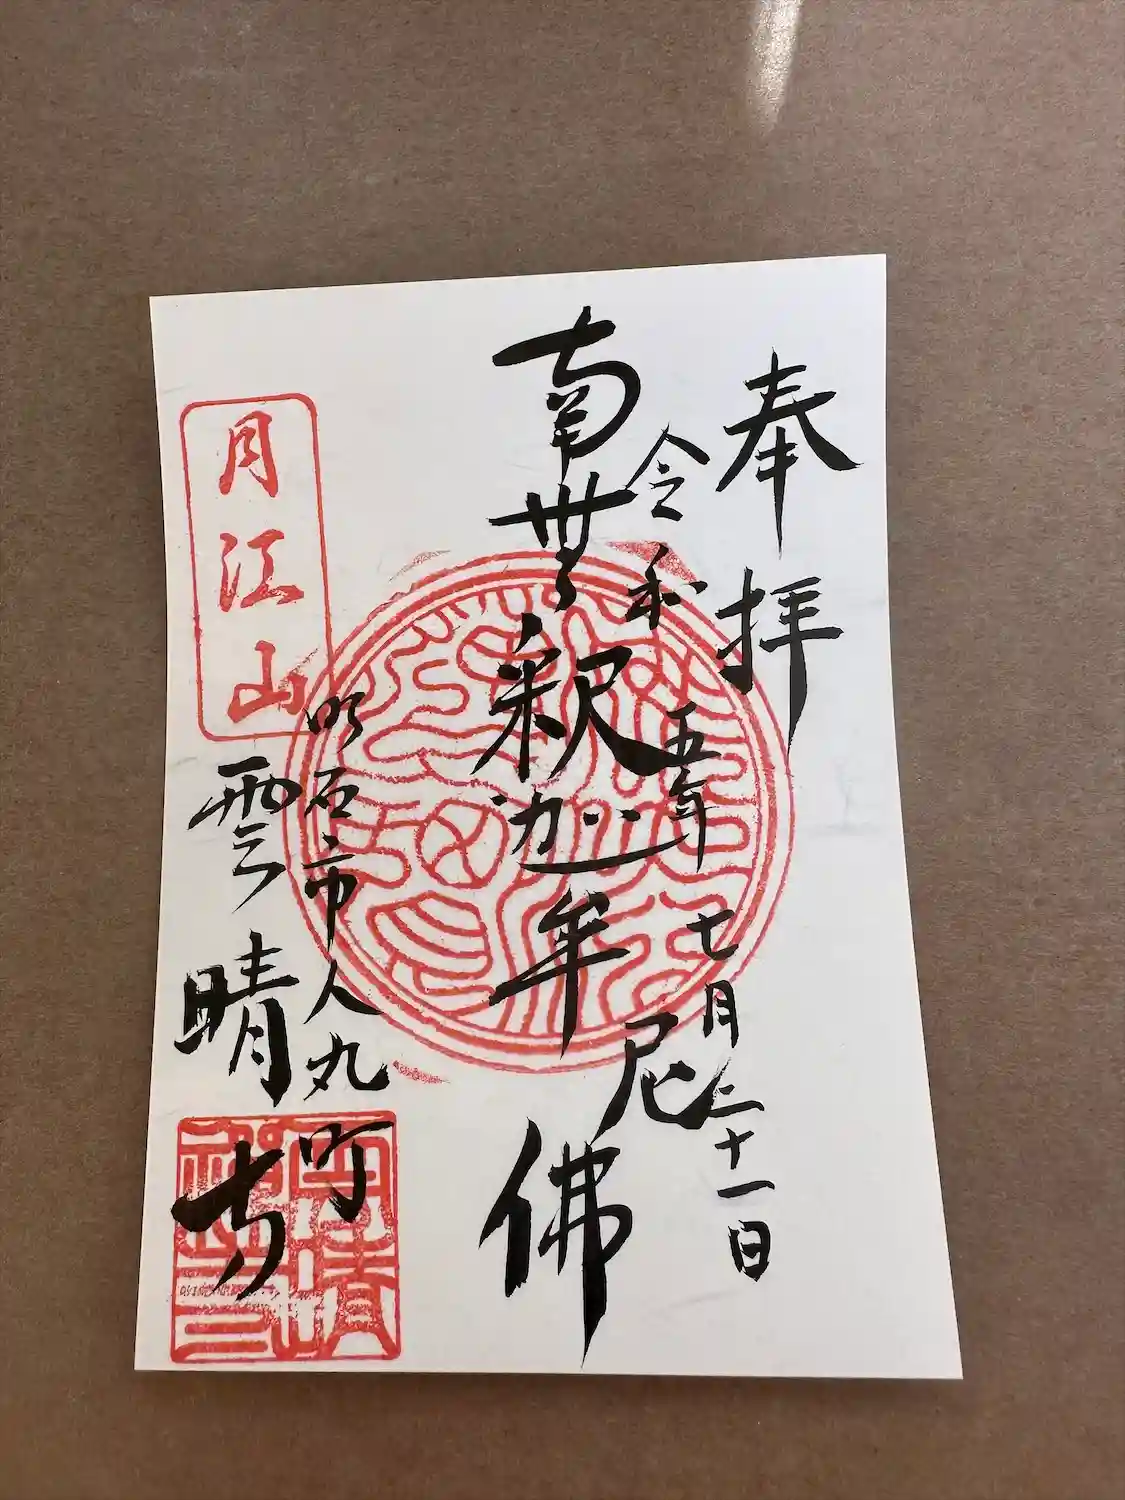 奉拝
令和五年七月二十一日
南無釈迦牟尼佛
明石市人丸町
月江山
雲晴寺